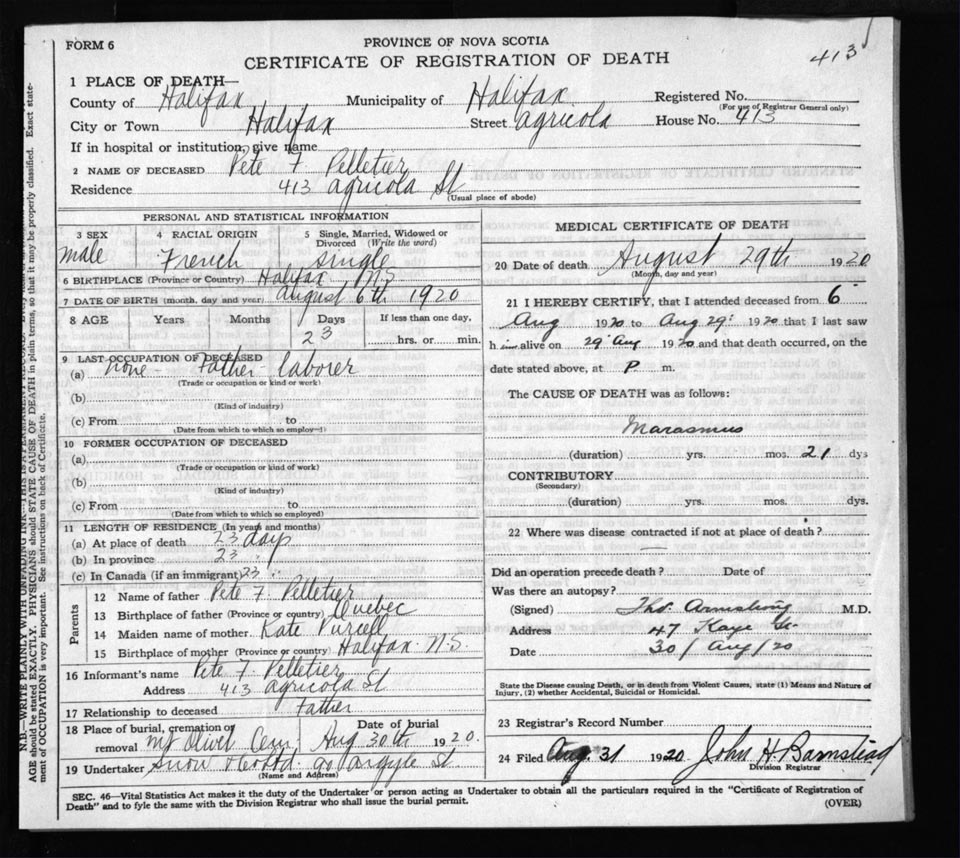 FORM 6
PROVINCE OF NOVA SCOTIA
CERTIFICATE OF REGISTRATION OF DEATH
413
1 PLACE OF DEATH—
County of Halifax Municipality of Halifax Registered No.
(For use of Registrar General only)
City or Town Halifax Street Agricola House No. 413
If in hospital or institution, give name
2 NAME OF DECEASED Pete F Pelletier
Residence 413 Agricola St
(Usual place of abode)
PERSONAL AND STATISTICAL INFORMATION
3 SEX 4 RACIAL ORIGIN 5 Single, Married, Widowed or Divorced (Write the word)
Male French Single
6 BIRTHPLACE (Province or Country) Halifax N.S
7 DATE OF BIRTH (month, day and year) August 6th 1920
8 AGE Years Months Days If less than one day,
23 hrs. or min.
9 LAST OCCUPATION OF DECEASED
(a) None - Father laborer
(Trade or occupation or kind or work)
(b)
(Kind of industry)
(c) From to
(Date from which to which so employ—)
10 FORMER OCCUPATION OF DECEASED
(a)
(Trade or occupation or kind of work)
(b)
(Kind of industry)
(c) From to
(Date from which to which so employed)
11 LENGTH OF RESIDENCE (In years and months)
(a) At place of death 23 days
(b) In province 23 "
(c) In Canada (if an immigrant) 23 "
Parents
12 Name of father Pete F Pelletier
13 Birthplace of father (Province or country) Quebec
14 Maiden name of mother Kate Purcell
15 Birthplace of mother (Province or country) Halifax N.S.
16 Informant's name Pete F. Pelletier
Address 413 Agricola St
17 Relationship to deceased Father
18 Place of burial, cremation or removal Mt Olivet Cem. Date of burial Aug 30th 1920.
19 Undertaker Snow 90 Argyle St
(Name and Address)
MEDICAL CERTIFICATE OF DEATH
20 Date of death August 29th 1920
(Month, day and year)
21 I HEREBY CERTIFY, that I attended deceased from 6
Aug 1920 to Aug 29 1920 that I last saw
him alive on 29 Aug 1920 and that death occurred, on the
date stated above, at P m.
The CAUSE OF DEATH was as follows:
Marasmus
(duration) yrs. mos. 21 dys
CONTRIBUTORY
(Secondary)
(duration) yrs. mos. dys.
22 Where was disease contracted if not at place of death?
—
Did an operation precede death? Date of
Was there an autopsy?
(Signed) Tho. Armstrong M.D.
Address 47 Kaye St.
Date 30/Aug/20
State the Disease causing Death, or in death from Violent Causes, state (1) Means and Nature of
Injury, (2) whether Accidental, Suicidal or Homicidal.
23 Registrar's Record Number
24 Filed Aug. 31 1920 John H. Barnstead
Division Registrar
SEC. 46—Vital Statistics Act makes it the duty of the Undertaker or person acting as Undertaker to obtain all the particulars required in the "Certificate of Registration of
Death" and to fyle the same with the Division Registrar who shall issue the burial permit.
(OVER)
AGE should be stated EXACTLY. PHYSICIANS should STATE CAUSE OF DEATH in plain terms, so that it may be properly classified. Exact state-
ment of OCCUPATION is very important. See instructions on back of Certificate.